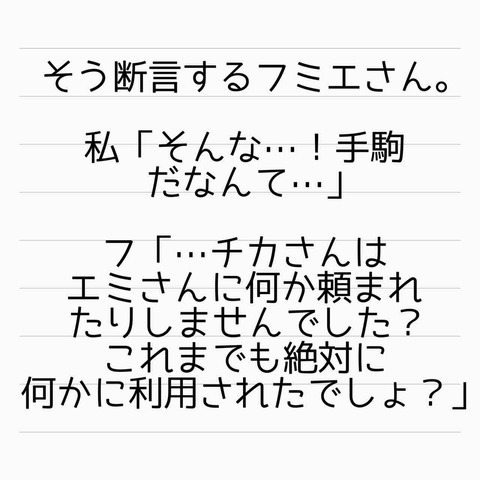 そう断言するフミエさん。
私「そんな…！手駒
だなんて…」
フ「…チカさんは
エミさんに何か頼まれ
たりしませんでした？
これまでも絶対に
何かに利用されたでしょ？」